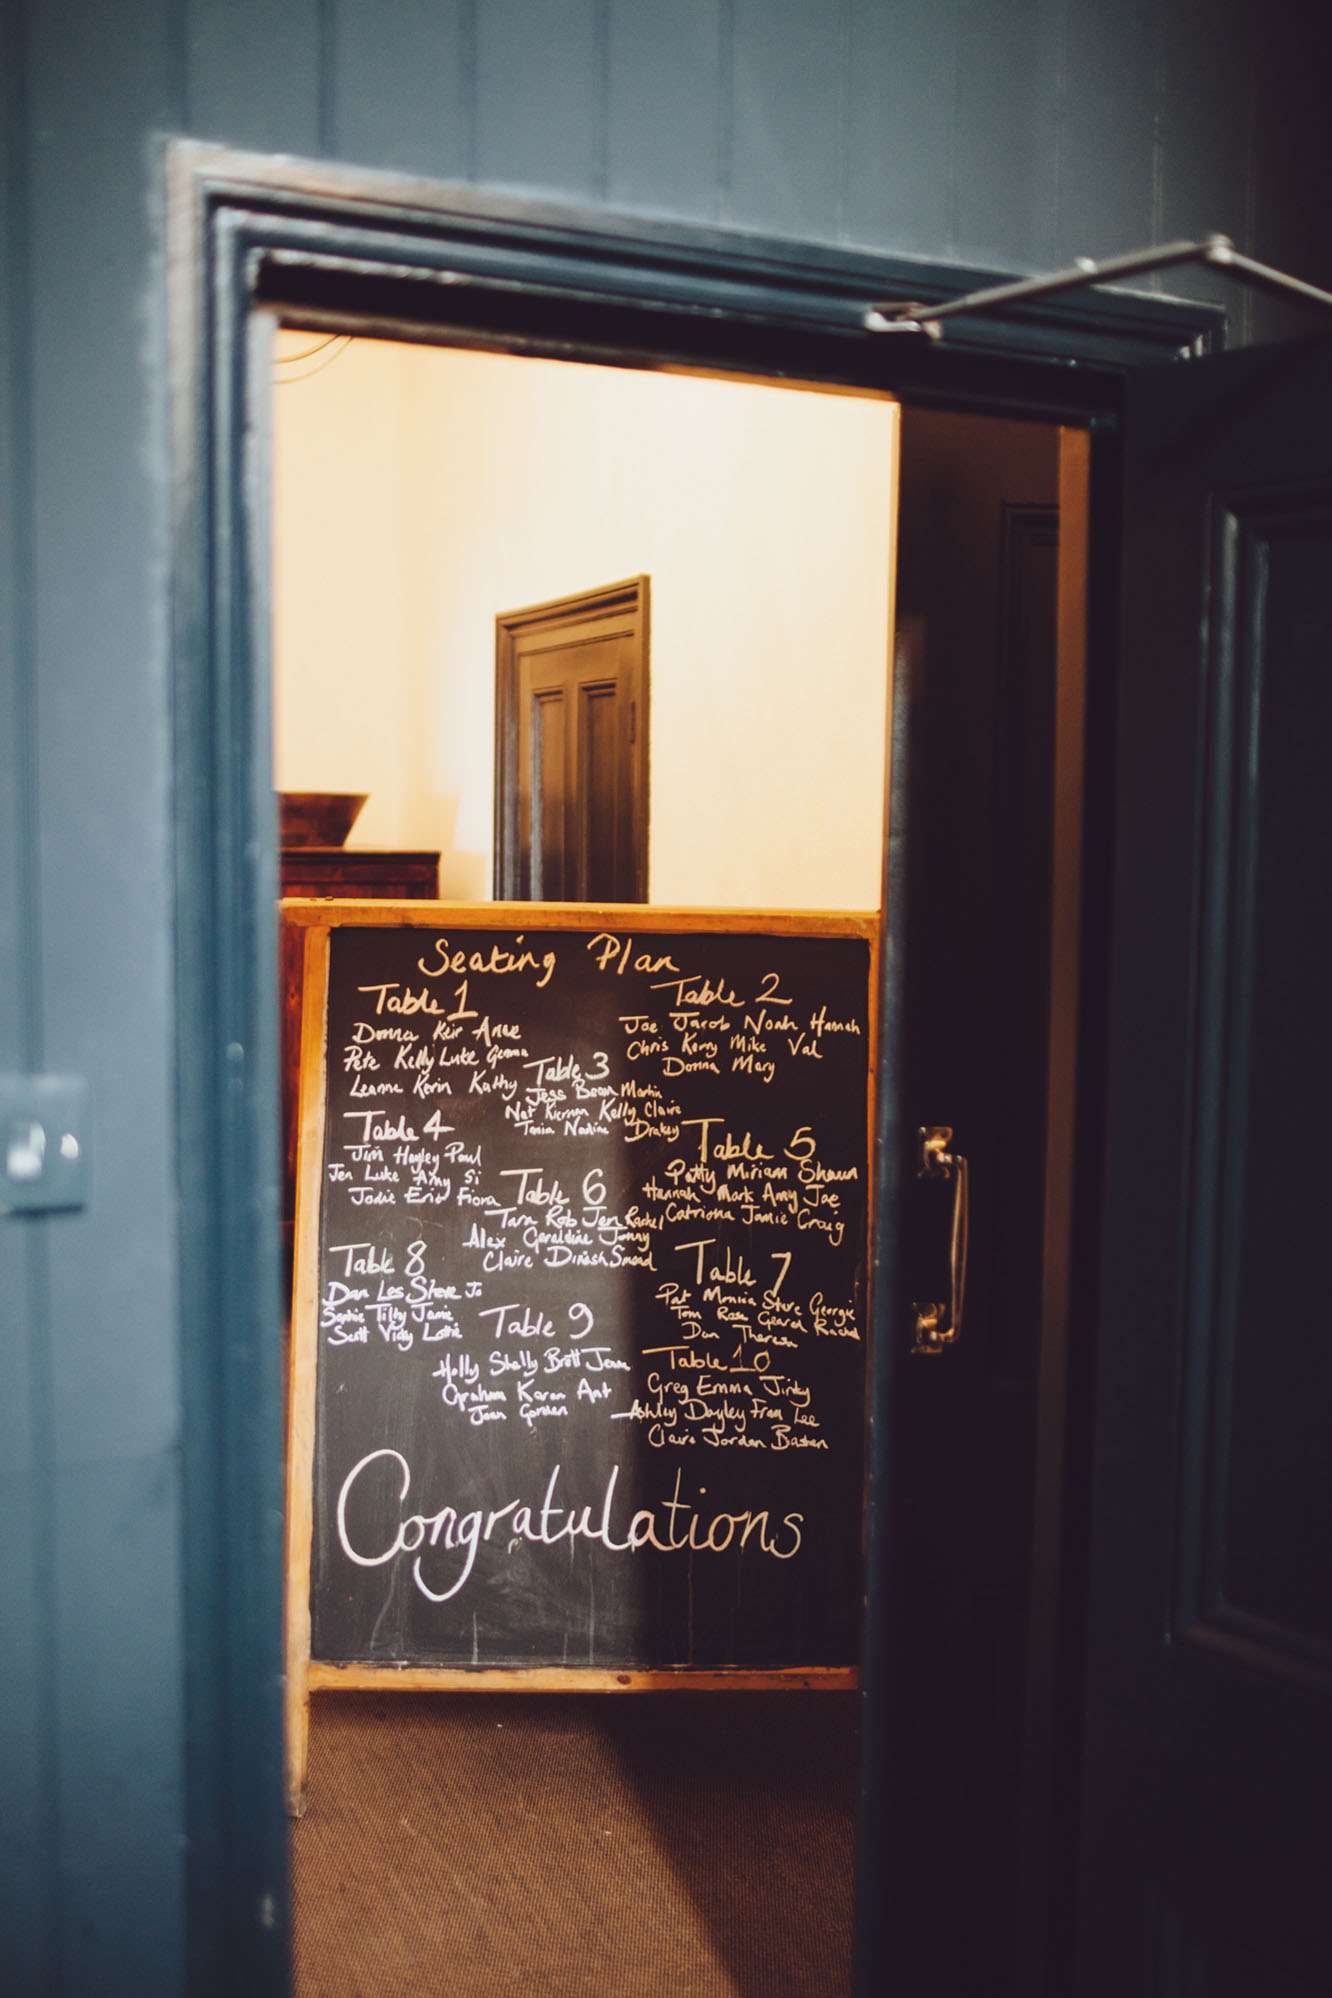 Seating Plan
Table 1
Donna Keir Anne
Pete Kelly Luke Gemma
Leanne Kerin Kathy
Table 2
Joe Jacob Noah Hannah
Chris Kerry Mike Val
Donna Mary
Table 3
Jess Martin
Nat Kiernan Kelly Claire
Tania Nadine
Table 4
Jim Hayley Paul
Jen Luke Amy Si
Jodie Eric Fiona
Table 5
Patty Miriam Shaun
Hannah Mark Amy Joe
Catriona Jamie Craig
Table 6
Tara Rob Jen Rachel
Alex Geraldine Jonny
Claire Dinesh
Table 7
Pat Monica Steve Georgie
Tom Rose Gerard Rachel
Dan Theresa
Table 8
Dan Les Steve Jo
Sophie Tilly Jamie
Scott Vicky Lottie
Table 9
Holly Shelly Brett
Graham Karen Ant
Joan Gordon
Table 10
Greg Emma Jinky
Ashley Dayley Fran Lee
Claire Jordan
Congratulations